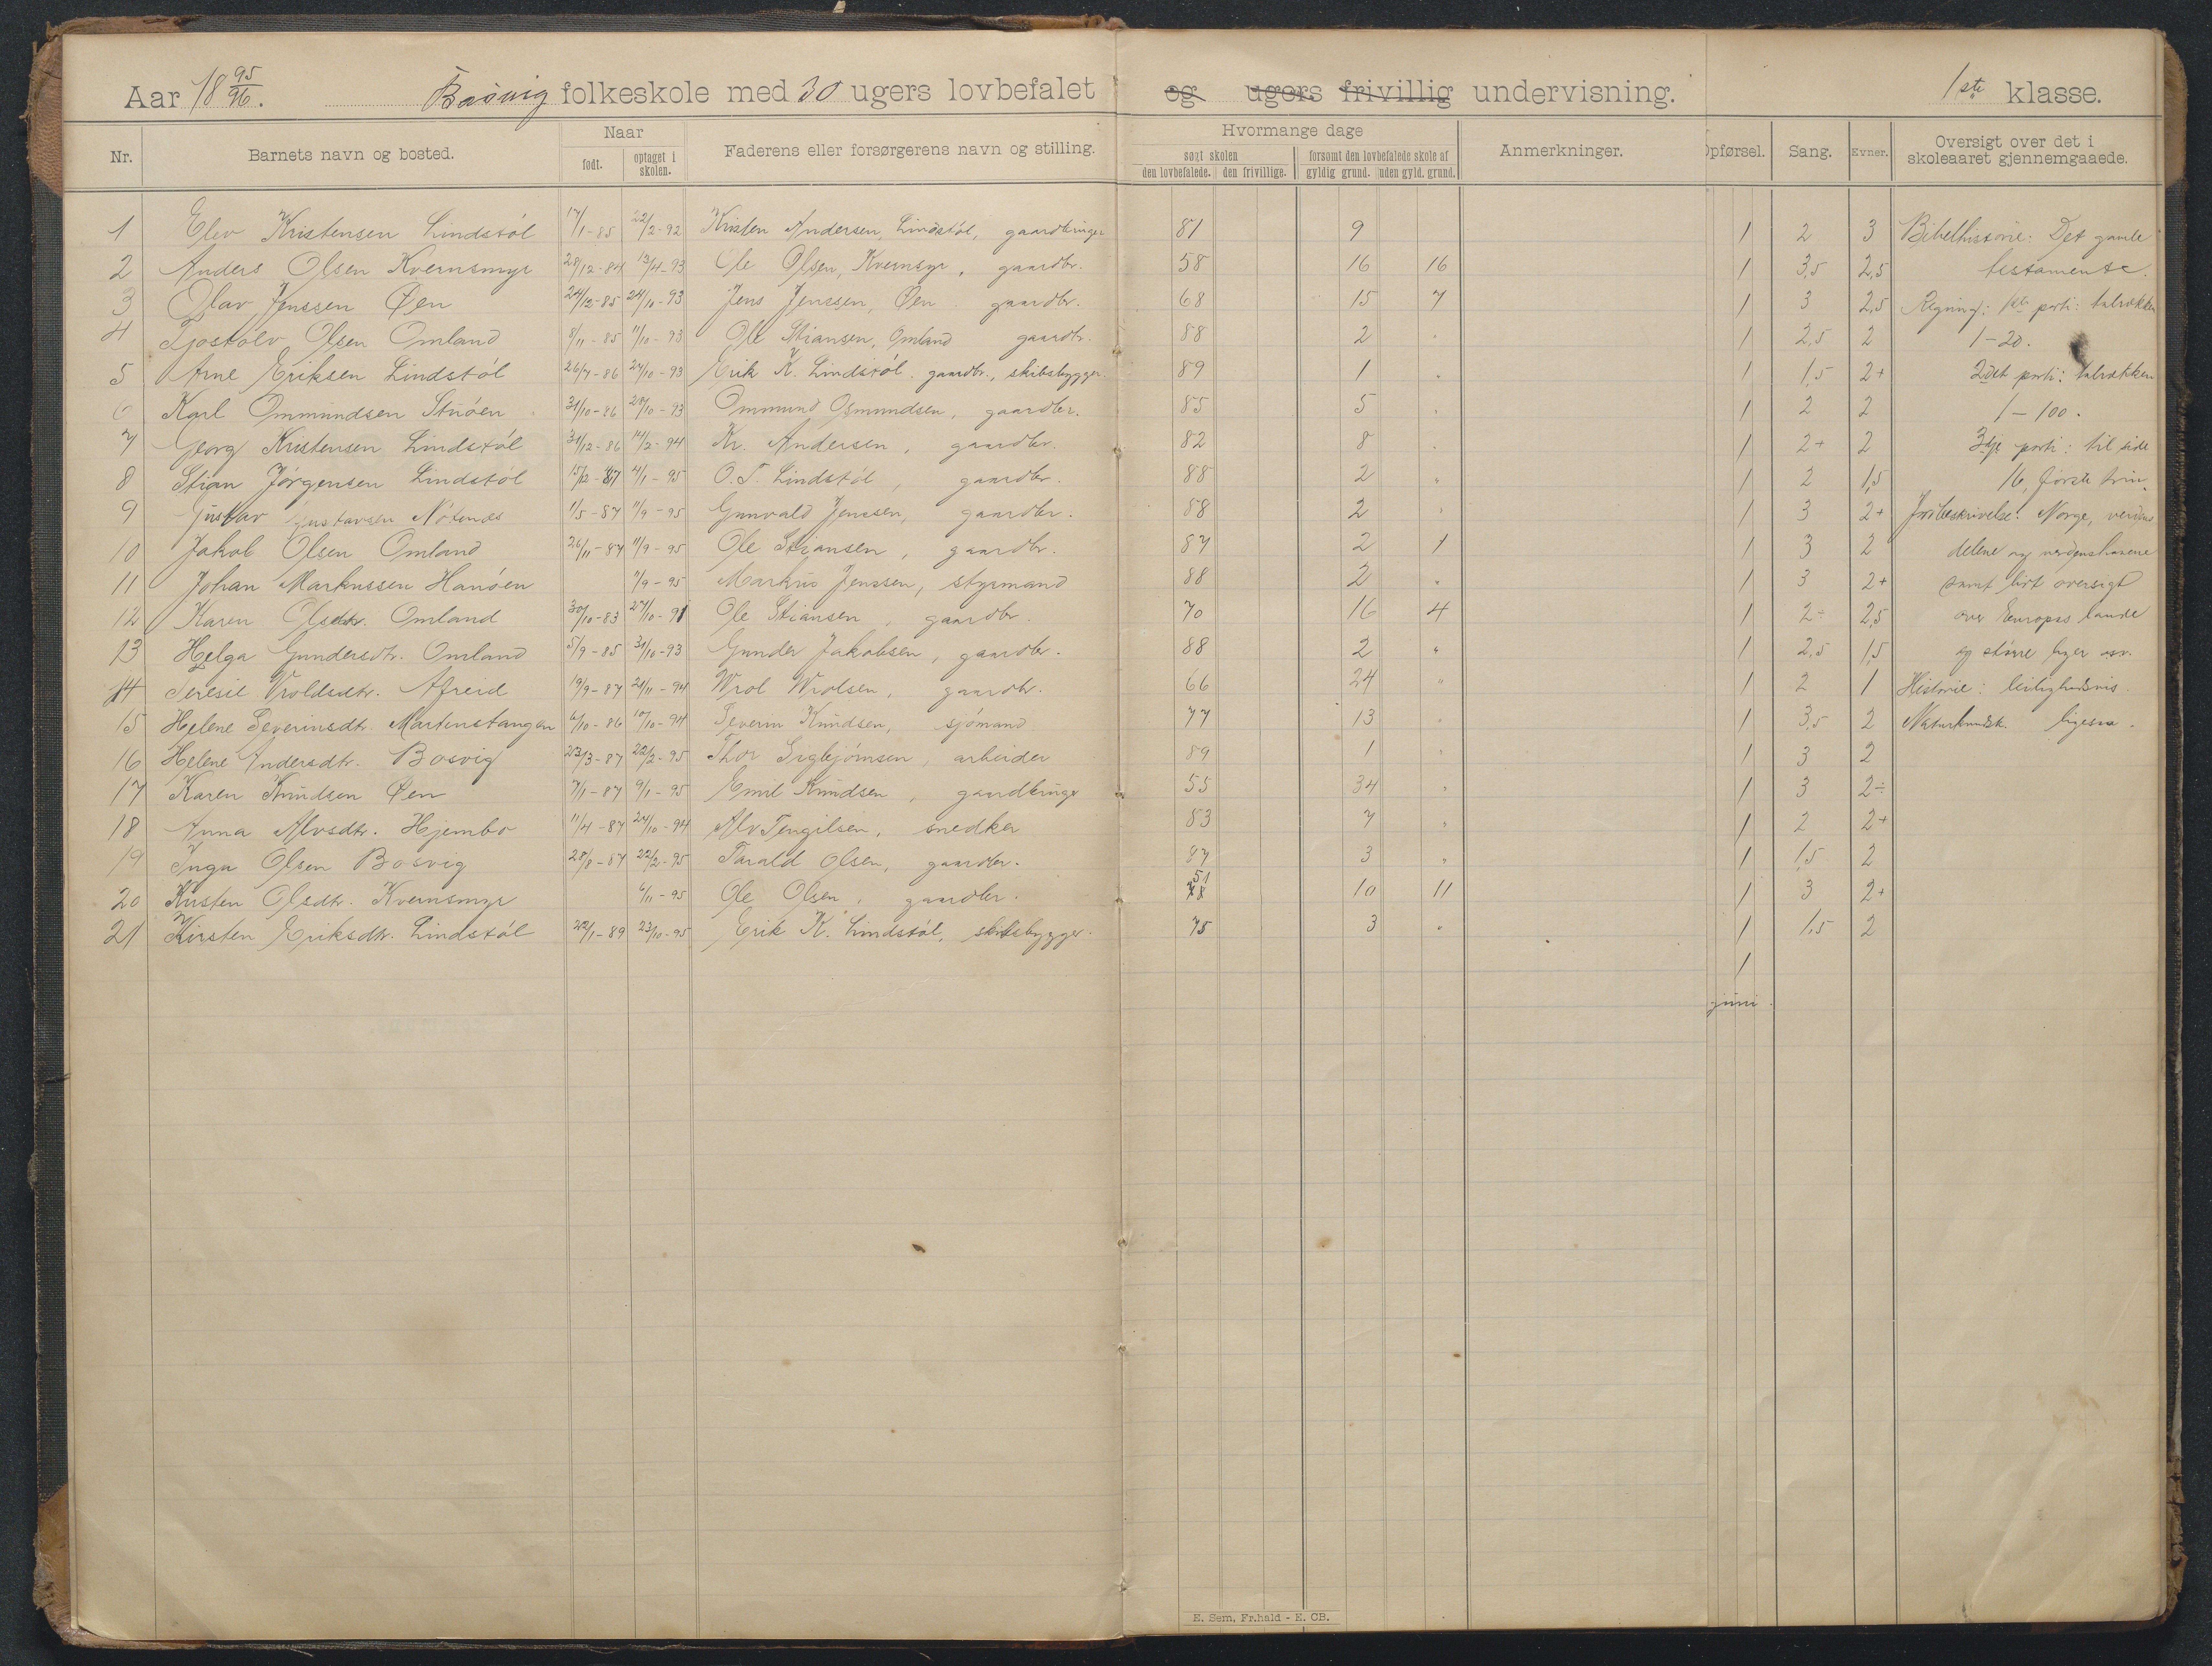 Aar 18 95/96. Bosvig folkeskole med 30 ugers lovbefalet og ugers frivillig undervisning. 1ste klasse.
Nr. Barnets navn og bosted. Naar født. optaget i skolen. Faderens eller forsørgerens navn og stilling. Hvormange dage søgt skolen den lovbefalede. den frivillige. forsømt den lovbefalede skole af gyldig grund. uden gyld. grund. Anmerkninger. Opførsel. Sang. Evner. Oversigt over det i skoleaaret gjennemgaaede.
1 Elev Kristensen Lindstøl 17/1-85 22/2-92 Kristen Andersen, Lindstøl, gaardbruger 81 9 1 2 3 Bibelhistorie: Det gamle
2 Anders Olsen Kvernsmyr 28/12-84 13/4-93 Ole Olsen, Kvernsyr, gaardbr. 58 16 16 1 3,5 2,5 testamente.
3 Olav Jenssen Øen 24/12-85 24/10-93 Jens Jenssen, Øen gaardbr. 68 15 7 1 3 2,5 Regning: 1ste parti: talrækken
4 Tjostolv Olsen Omland 8/11-85 11/10-93 Ole Stiansen, Omland gaardbr. 88 2 " 1 2,5 2 1-20.
5 Arne Eriksen Lindstøl 26/7-86 24/10-93 Erik K. Lindstøl. gaardbr., skibsbygger. 89 1 " 1 1,5 2+ 2det parti: talrækken
6 Karl Ommundsen Stuøen 31/10-86 24/10-93 Ommund Osmundsen, gaardbr. 85 5 " 1 2 2 1-100.
7 Georg Kristensen Lindstøl 31/12-86 14/2-94 Kr. Andersen, gaardbr. 82 8 " 1 2+ 2 3dje parti: til side
8 Stian Jörgensen Lindstøl 15/12-87 4/1-95 O. T. Lindstøl, gaardbr. 88 2 " 1 2 1,5 16, første trin.
9 Gustav Gustavsen Nötenes 1/5-87 11/9-95 Gunvald Jenssen, gaardbr. 88 2 " 1 3 2+ Jordbeskrivelse: Norge, verdens
10 Jakob Olsen Omland 26/11-87 11/9-95 Ole Stiansen, gaardbr. 87 2 1 1 3 2 delene og verdenshavene
11 Johan Markussen Hanöen 11/9-95 Markus Jenssen, styrmand 88 2 " 1 3 2+ samt kort oversigt
12 Karen Olsdtr. Omland 30/10-83 27/10-91 Ole Stiansen, gaardbr. 70 16 4 1 2÷ 2,5 over Europas lande
13 Helga Gundersdtr. Omland 5/9-85 31/10-93 Gunder Jakobsen, gaardbr. 88 2 " 1 2,5 1,5 og større byer osv.
14 Teresie Vroldsdtr. Afreid 19/9-87 21/11-94 Wrol Wrolsen, gaardbr. 66 24 " 1 2 1 Historie: leilighedsvis.
15 Helene Severinsdtr. Mortenstangen 6/10-86 10/10-94 Severin Knudsen, sjömand 77 13 " 1 3,5 2 Naturkundsk. ligesaa.
16 Helene Andersdtr. Bosvig 23/3-87 22/2-95 Thor, arbeider 89 1 " 1 3 2
17 Karen Knudsen Øen 7/1-87 9/1-95 Emil Knudsen, gaardbruger 55 34 " 1 3 2÷
18 Anna Alvsdtr. Hjembo 11/4-87 24/10-94 Alv Tengilsen, snedker 83 7 " 1 2 2+
19 Inga Olsen Bosvig 28/8-87 22/2-95 Tarald Olsen, gaardbr. 87 3 " 1 1,5 2
20 Kirsten Olsdtr. Kvernsmyr 6/11-95 Ole Olsen, gaardbr. 51 10 11 1 3 2+
21 Kirsten Eriksdtr. Lindstøl 22/1-89 23/10-95 Erik K. Lindstøl, skibsbygger. 75 3 " 1 1,5 2
1
juni.
E. Sem, Fr.hald - E. CB.